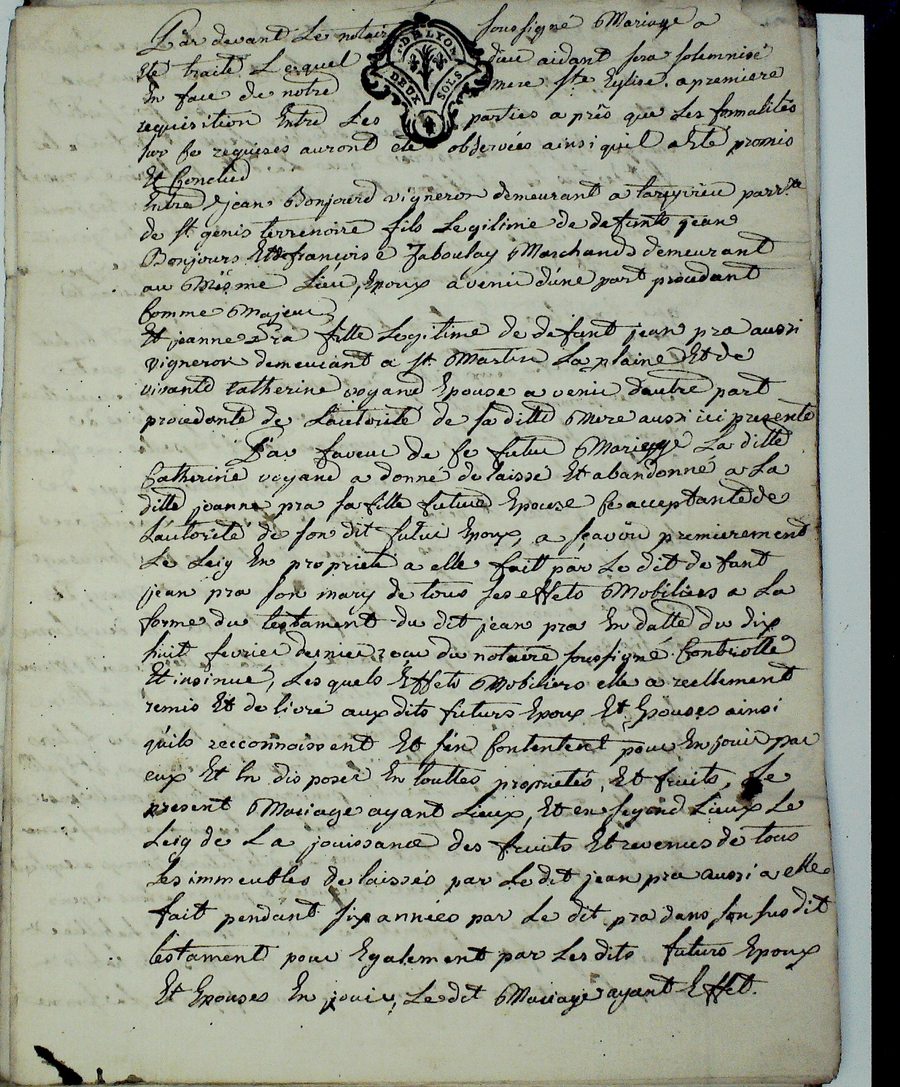 Par devant Le notaire soussigné Mariage a
Eté traité Lequel Dieu aidant sera solemnisé
En face de notre mere Ste Eglise. a premiere
requisition Entre Les parties apres que Les formalités
sur ce requises auront eté observées ainsi quil a Eté promis
Et Conclud
DE LYON
DEUX SOLS
Entre jean Bonjourd vigneron demeurant a parr.se
de st genis terrenoire fils Legitime de defunts jean
Bonjours Et de françoise Jaboulay Marchands demeurant
au Mesme Lieu, Epoux avenir dune part procedant
Comme Majeur
Et jeanne pra fille Legitime de defunt jean pra aussi
vigneron demeurant a st Martin La plaine Et de
vivante catherine voyand Epouse a venir dautre part
procedante de Lautorité de sa ditte Mere aussi ici presente
Par faveur de ce futur Mariage La ditte
Catherine voyand a donné delaissé Et abandonné a La
ditte jeanne pra sa fille future Epouse Ce acceptante de
Lautorité de son dit futur Epoux, a sçavoir premierement
Le Leig En proprieté a elle fait par Le dit defant
jean pra son mary de tous ses effets Mobiliers a La
forme du testament du dit jean pra En datte du dix
huit fevrier dernier reçu du notaire soussigné Controllé
Et insinué, Les quels Effets Mobiliers elle a reellement
remis Et delivré aux dits futurs Epoux Et Epouses ainsi
quils recconnoissent Et s'en Contentent pour En jouir par
eux Et En disposer En touttes proprietés, Et fruits, Le
present Mariage ayant Lieux, Et en segond Lieux Le
Leig de La jouissance des fruits Et revenus de tous
Les immeubles delaissés par Le dit jean pra aussi a elle
fait pendant six années par Le dit pra dans son sus dit
testament pour Egalement par Les dits futurs Epoux
Et Epouses En jouir, Le dit Mariage ayant Effet.